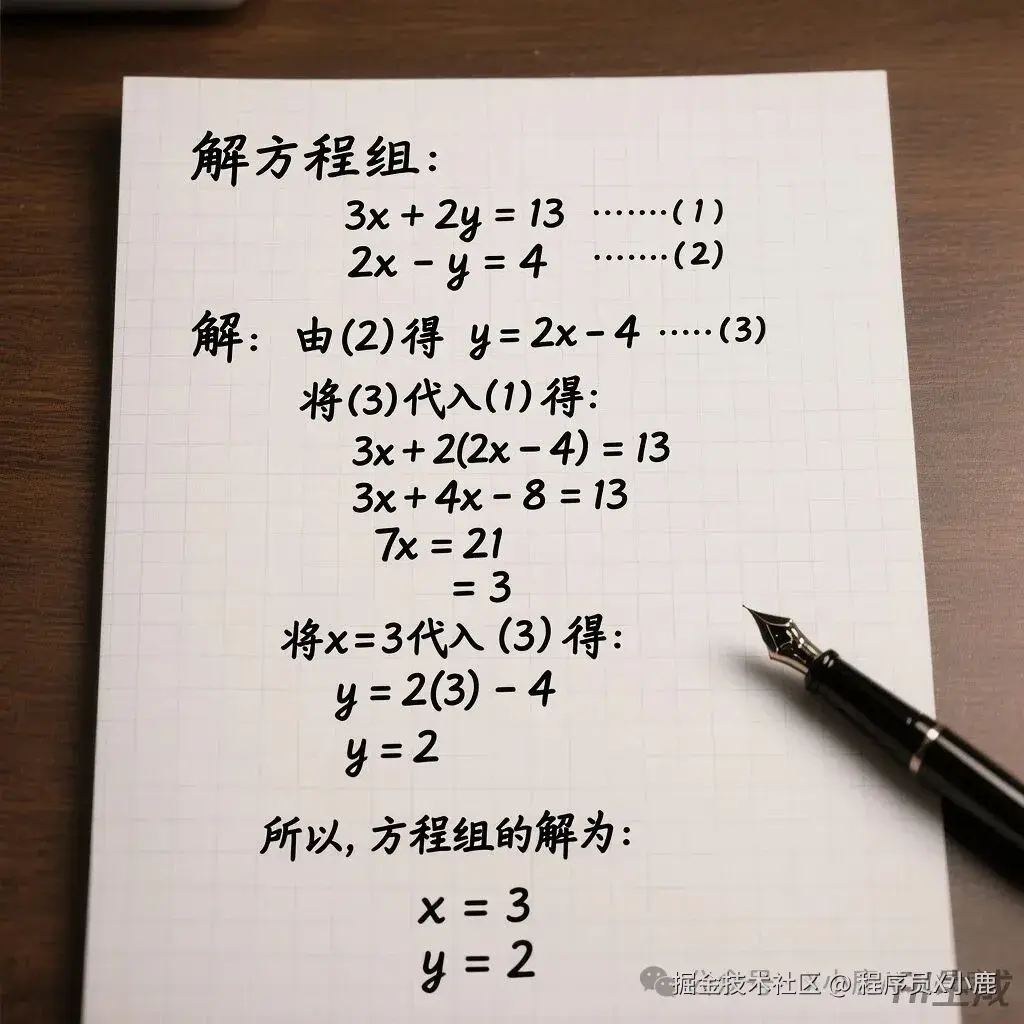 解方程组:
3x + 2y = 13 ·······(1)
2x - y = 4 ·······(2)
解: 由(2)得 y = 2x - 4 ·····(3)
将(3)代入(1)得:
3x + 2(2x - 4) = 13
3x + 4x - 8 = 13
7x = 21
= 3
将x=3代入(3)得:
y = 2(3) - 4
y = 2
所以, 方程组的解为:
x = 3
y = 2
掘金技术社区 @ 程序员X小鹿